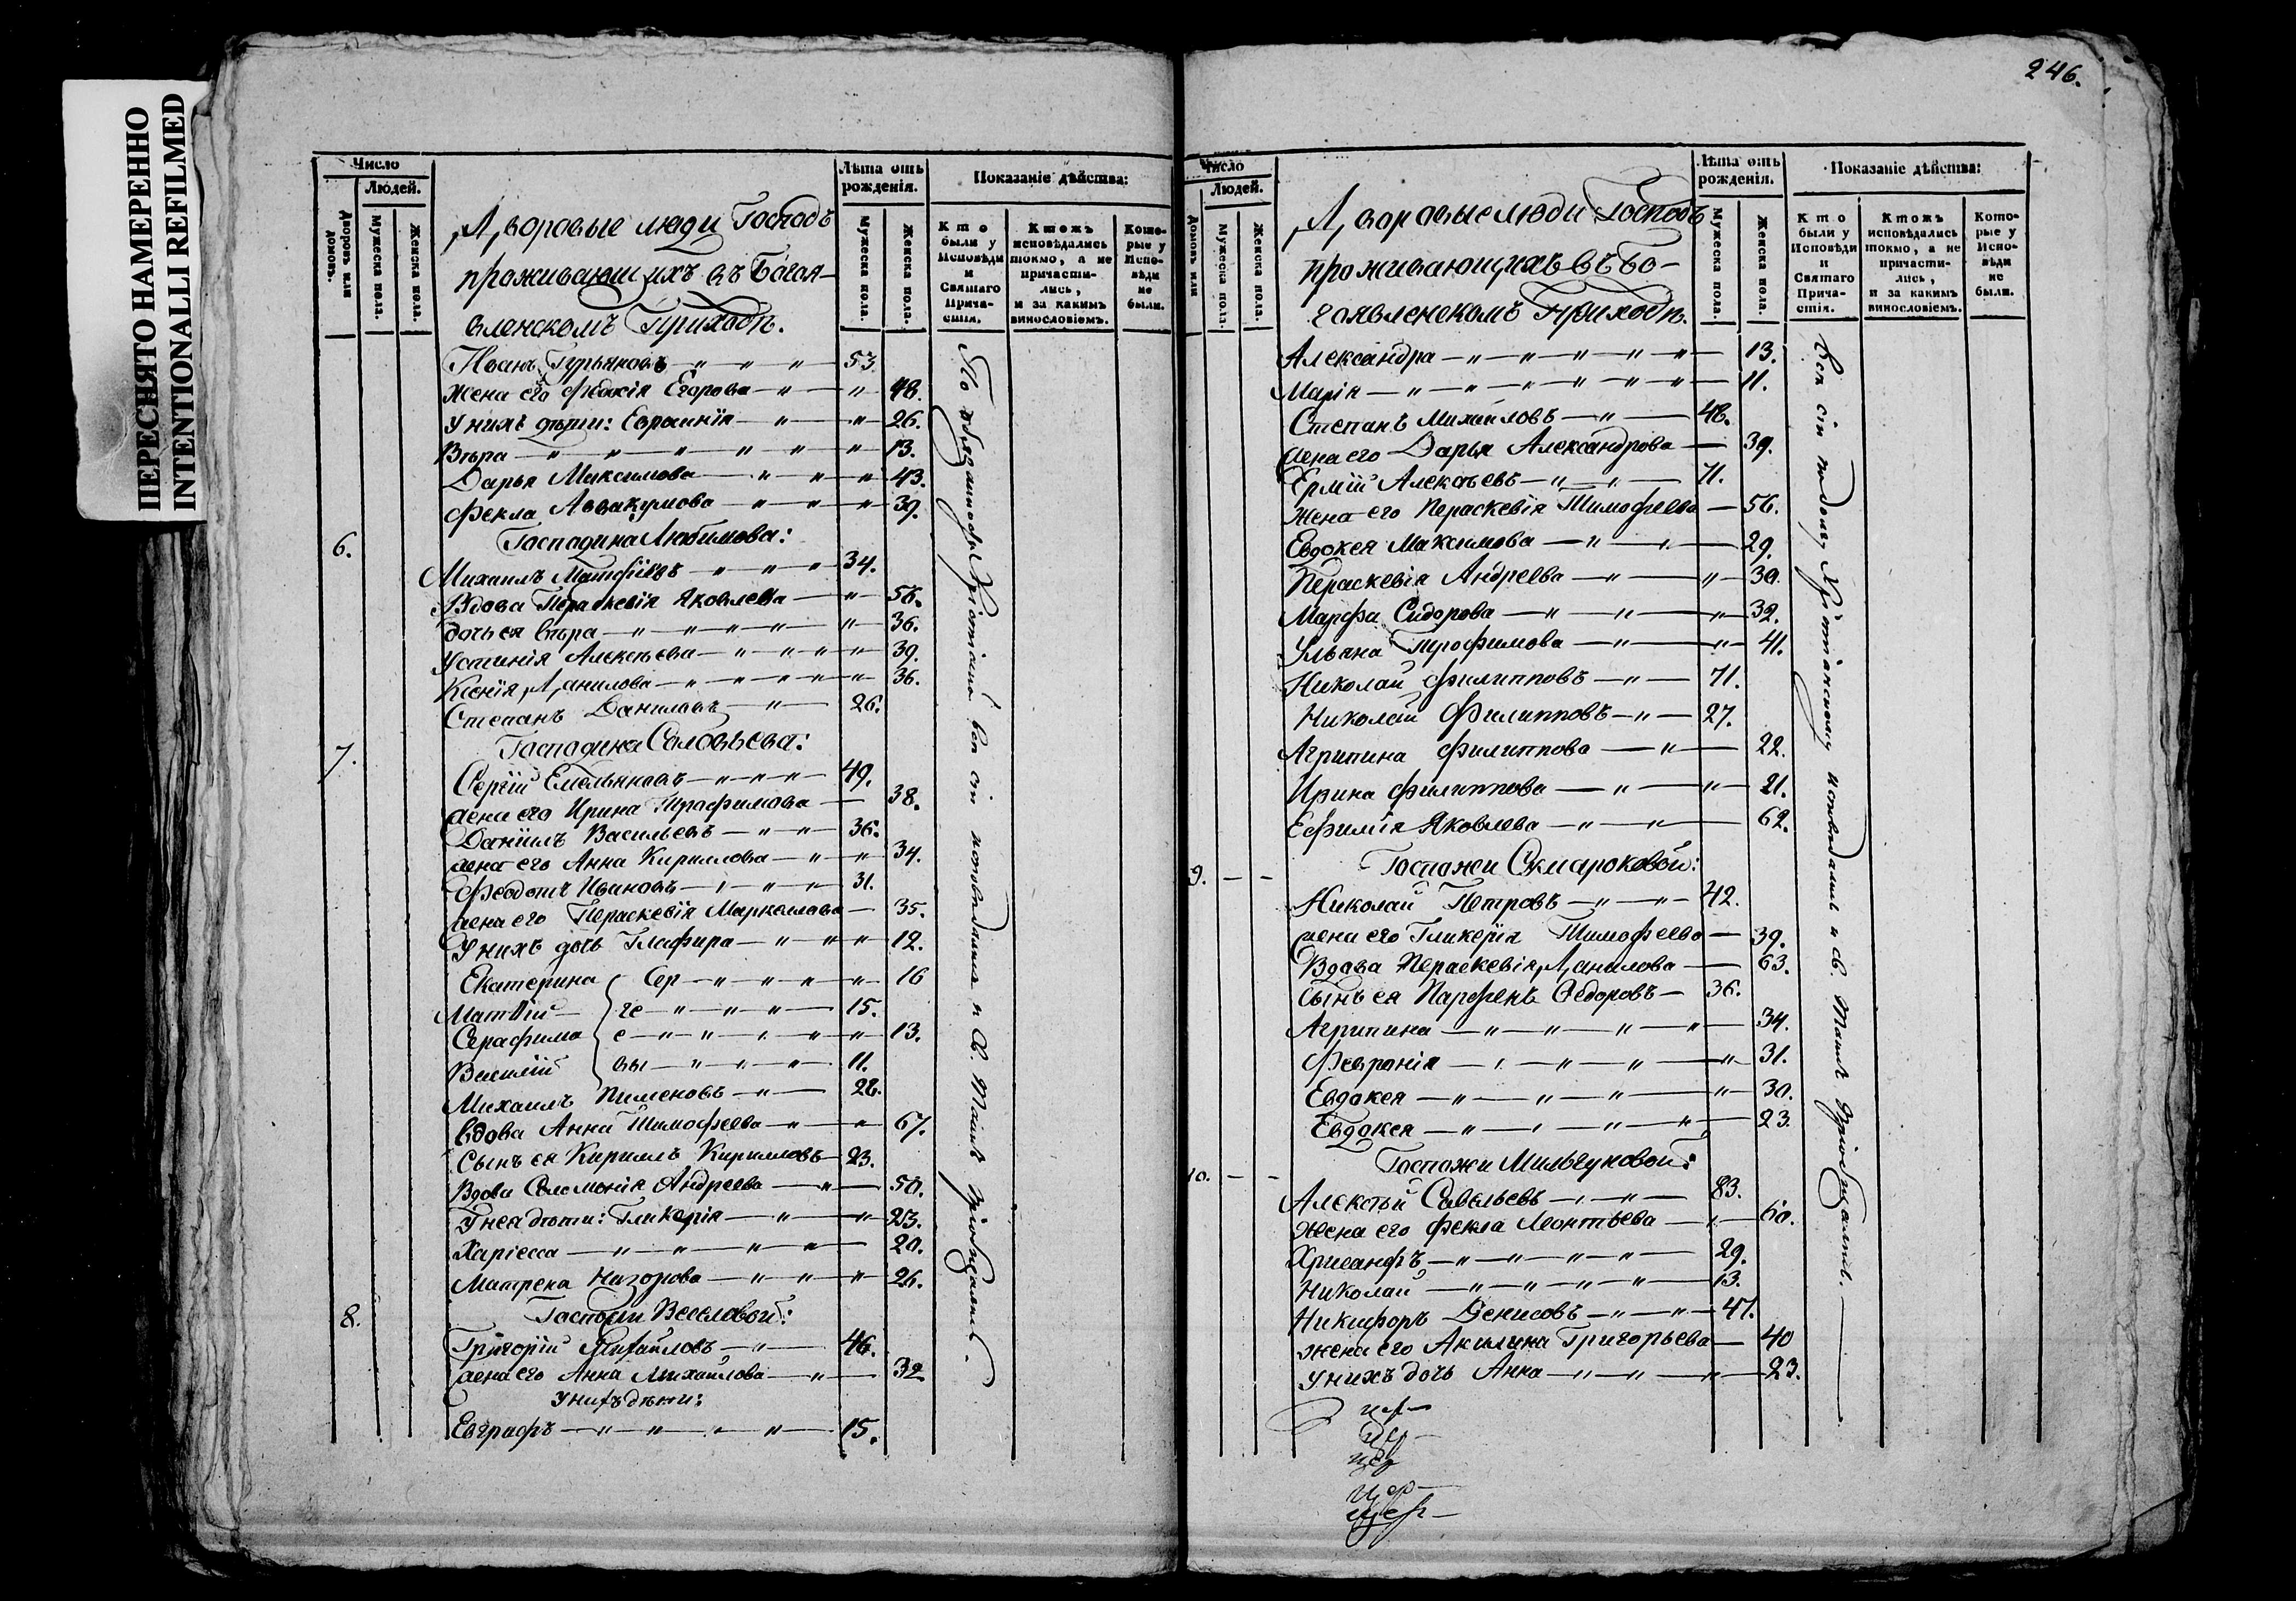 ПЕРЕСНЯТО НАМЕРЕННО
INTENTIONALLI REFILMED
Число
Людей.
Дворовъ или домовъ.
Мужеска пола.
Женска пола.
Дворовые люди Господъ
проживающихъ въ Богоя-
вленскомъ Приходѣ.
Лѣта отъ рожденія.
Мужеска пола.
Женска пола.
Показаніе дѣйства:
Кто были у Исповѣди и Святаго Прича-стія.
Ктожъ исповѣдались токмо, а не причасти-лись, и за какимъ винословіемъ.
Кото-рые у Испо-вѣди не были.
Иванъ Гурьяновъ — " — " — " — 53.
Жена его Федосія Егорова — " — " — 48.
У нихъ дѣти: Евпраксія — " — " — 26.
Вѣра — " — " — " — " — " — " — 13.
Дарья Максимова — " — " — " — 43.
Фекла Аввакумова — " — " — " — 39.
6. Господина Любимова:
Михаилъ Матфѣевъ — " — " — " 34.
Вдова Пераскевія Яковлева — " — 56.
дочь ея Вѣра — " — " — " — " — " — 36.
Устинія Алексѣева — " — " — " — " — 39.
Ксенія Данилова — " — " — " — " — " — 36.
Степанъ Даниловъ — " — 26.
7. Господина Соловьева:
Сергій Емельяновъ — " — " — " — 49.
жена его Ирина Трофимова — 38.
Даніилъ Васильевъ — " — " — 36.
жена его Анна Кириллова — " — " — 34.
Феодотъ Ивановъ — " — " — " — 31.
жена его Пераскевія Маркелова — 35.
У нихъ дочь Глафира — " — " — " — 12.
Екатерина Сер — " — " — " — " — 16
Матвій — ге — " — " — " — 15.
Серафима е — " — " — " — " — " — 13.
Василій вы — " — " — " — 11.
Михаилъ Пименовъ — " — 22.
вдова Анна Тимофеева — " — " — 67.
Сынъ ея Кириллъ Кирилловъ — 23.
Вдова Соломонія Андреева — " — 50.
У нея дѣти: Гликерія — " — " — 23.
Харіесса — " — " — " — " — 20.
Матрена Назорова — " — " — " — 26.
8. Госпожи Веселовой:
Григорій Михайловъ — " — 46.
жена его Анна Михайлова — " — 32
У нихъ дѣти:
Евграфъ — " — " — " — " — 15.
Всѣ сіи исповѣдались и Св. Таинъ пріобщались.
246.
Число
Людей.
Домовъ или
Мужеска пола.
Женска пола.
Дворовые люди Господъ
проживающихъ въ Бо-
гоявленскомъ Приходѣ.
Лѣта отъ рожденія.
Мужеска пола.
Женска пола.
Показаніе дѣйства:
Кто были у Исповѣди и Святаго Прича-стія.
Ктожъ исповѣдались токмо, а не причасти-лись, и за какимъ винословіемъ.
Кото-рые у Испо-вѣди не были.
Александра — " — " — " — " — " — 13.
Марія — " — " — " — " — " — " — 11.
Степанъ Михайловъ — " — 48.
жена его Дарья Александрова — 39.
Ермій Алексѣевъ — " — " — 71.
Жена его Пераскевія Тимофеева — 56.
Евдокея Максимова — " — " — 29.
Пераскевія Андреева — " — " — 30.
Марфа Сидорова — " — " — " — 32.
Ульяна Трофимова — " — " — 41.
Николай Филипповъ — " — 71.
Николай Филипповъ — " — 27.
Агрипина Филиппова — " — 22.
Ирина Филиппова — " — " — 21.
Ефимія Яковлева — " — " — 62.
9. — — Госпожи Сумароковой:
Николай Петровъ — " — " — 42.
жена его Гликерія Тимофеева — 39.
Вдова Пераскевія Данилова — 63.
Сынъ ея Парфенъ Федоровъ — 36.
Агрипина — " — " — " — " — 34.
Февронія — " — " — " — " — 31.
Евдокея — " — " — " — " — 30.
Евдокея — " — " — " — " — 23.
10. — — Госпожи Мильгуновой:
Алексѣй Савельевъ — " — " — 83.
Жена его Фекла Леонтьева — " — 60.
Хрисанфъ — " — " — " — " — 29.
Николай — " — " — " — " — 13.
Никифоръ Денисовъ — " — " — 47.
жена его Акилина Григорьева — 40
У нихъ дочь Анна — " — " — " — 23.
Всѣ сіи по долгу Христіанскому исповѣдались и Св. Таинъ Пріобщались.